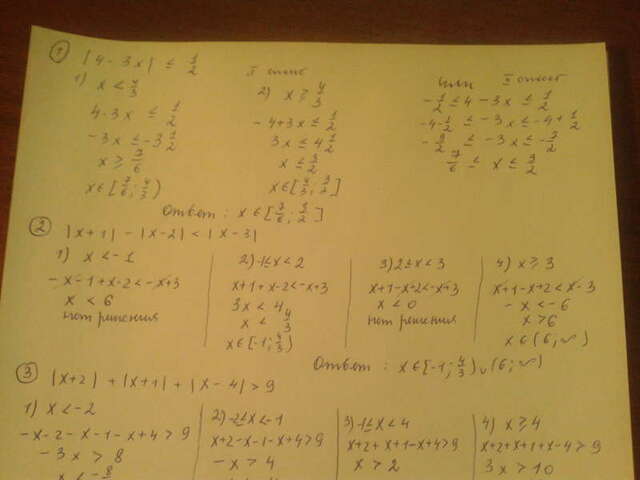 ① |4-3x| ≤ 1/2
1) x < 4/3
4-3x ≤ 1/2
-3x ≤ -3 1/2
x ≥ 7/6
x ∈ [7/6; 4/3)
2) x ≥ 4/3
-4+3x ≤ 1/2
3x ≤ 4 1/2
x ≤ 3/2
x ∈ [4/3; 3/2]
или
-1/2 ≤ 4-3x ≤ 1/2
-4-1/2 ≤ -3x ≤ -4+1/2
7/6 ≤ x ≤ 3/2
Ответ: x ∈ [7/6; 3/2]
② |x+1| - |x-2| < |x-3|
1) x < -1
-x-1+x-2<-x+3
x < 6
нет решения
2) -1≤x<2
x+1+x-2<-x+3
3x < 4
x < 4/3
x∈[-1; 4/3)
3) 2≤x<3
x+1-x+2<-x+3
x < 0
нет решения
4) x≥3
x+1-x+2<x-3
-x < -6
x > 6
x∈(6;∞)
Ответ: x∈[-1; 4/3)∪(6;∞)
③ |x+2| + |x+1| + |x-4| > 9
1) x<-2
-x-2-x-1-x+4>9
-3x > 8
2) -2≤x<-1
x+2-x-1-x+4>9
-x > 4
3) -1≤x<4
x+2+x+1-x+4>9
x > 2
4) x≥4
x+2+x+1+x-4>9
3x > 10